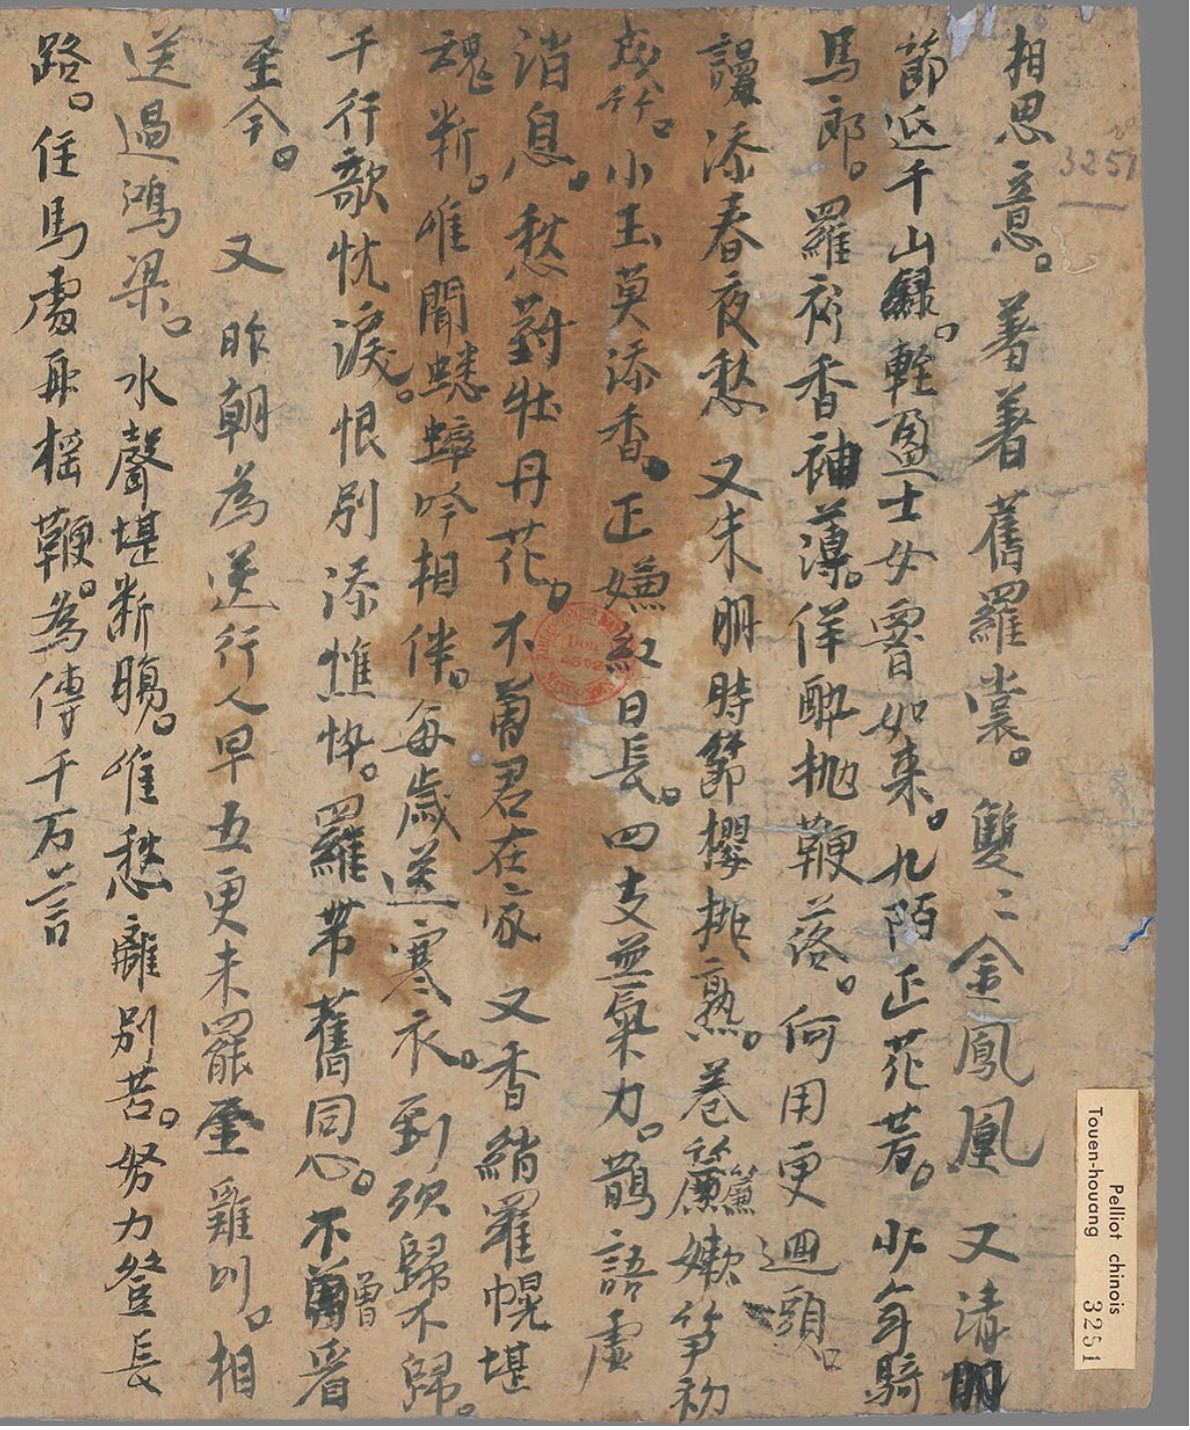 相思意。著著舊羅裳。雙〻金鳳凰 又清明
節近千山綠。輕盈士女𦝫如束。九陌正花芳。少年騎
馬郎。羅衫香袖薄。佯醉抛鞭落。何用更迴頭。
謾添春夜愁 又朱明時節櫻桃熟。卷簾簾嫩笋初
成竹。小玉莫添香。正嫌紅日長。四支無氣力。鵲語虛
消息。愁對牡丹花。不曾君在家 又香綃羅幌堪
魂斷。唯聞蟋蟀吟相伴。每歲送寒衣。到頭歸不歸。
千行欹枕淚。恨別添憔悴。羅帶舊同心。不曾曾看
至今。 又 昨朝為送行人早五更未罷金雞叫。相
送過鴻梁。水聲堪斷腸。唯愁離別苦。努力登長
路。住馬處再榣鞭。為傳千万言
3251
Pelliot chinois
Touen-houang 3251